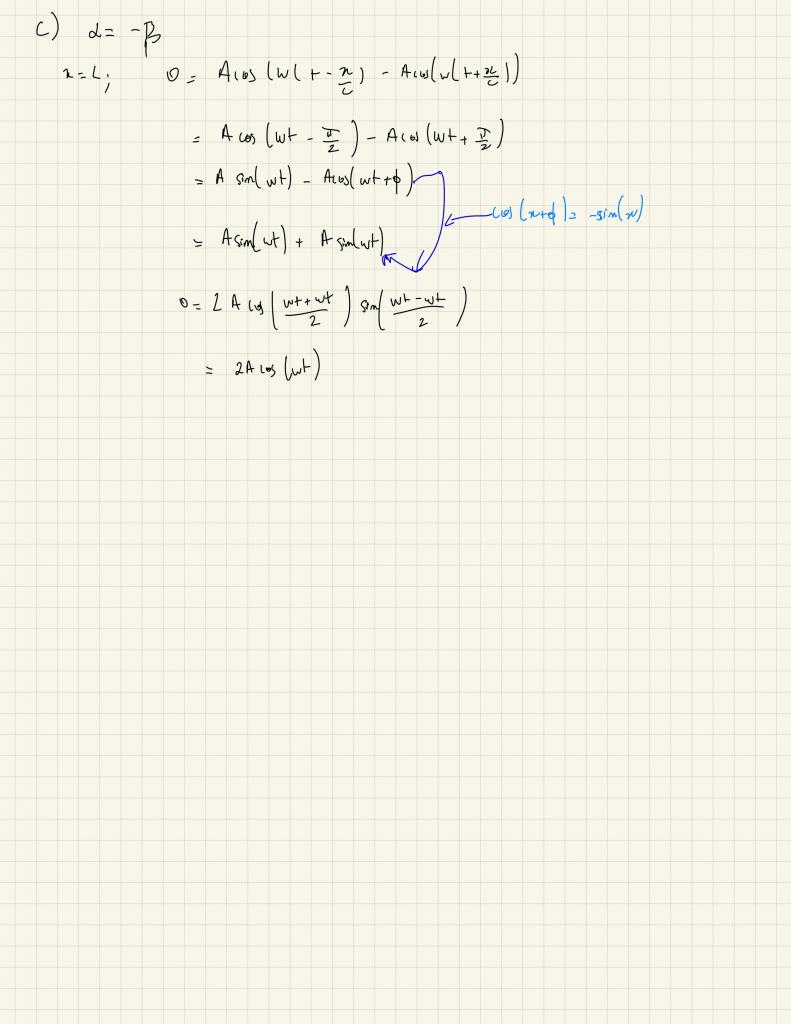 c) α = -β
x = L; 0 = A cos (ω(t - x/c)) - A cos(ω(t + x/c))
= A cos (ωt - π/2) - A cos (ωt + π/2)
= A sin(ωt) - A cos(ωt + ϕ)
cos(x+ϕ) = -sin(x)
= A sin(ωt) + A sin(ωt)
0 = 2 A cos ((ωt + ωt)/2) sin((ωt - ωt)/2)
= 2A cos (ωt)